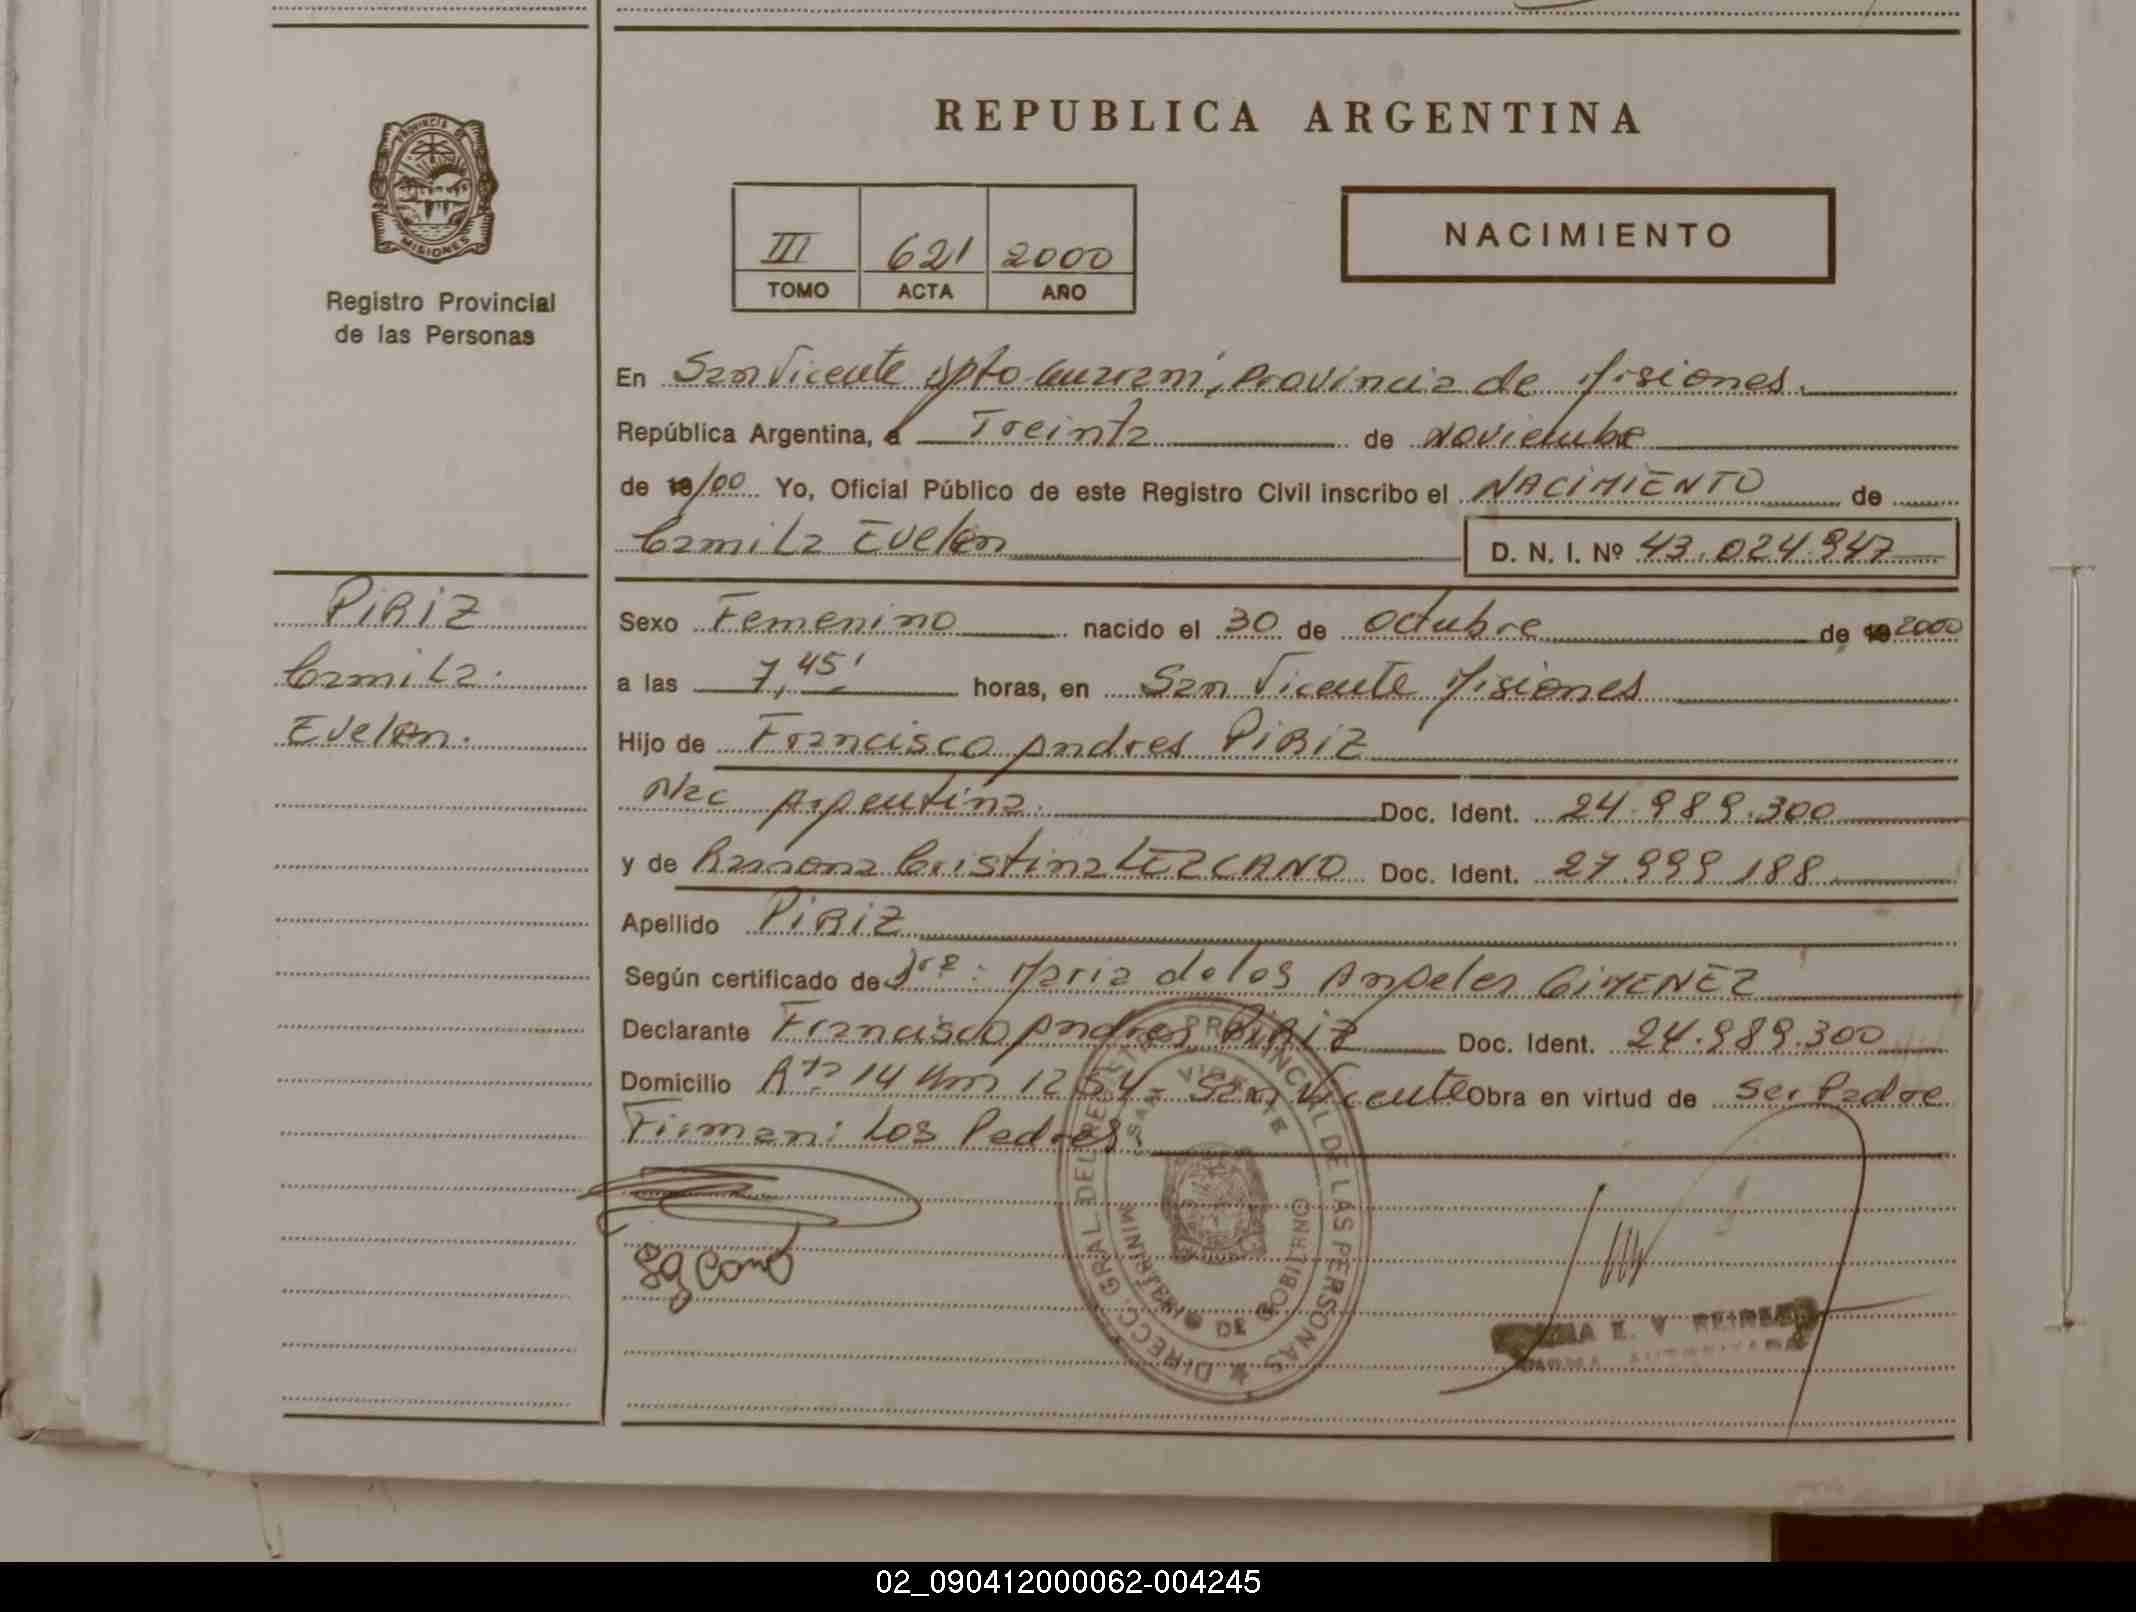 REPUBLICA ARGENTINA
PROVINCIA DE
MISIONES
Registro Provincial
de las Personas
III 621 2000
TOMO ACTA AÑO
NACIMIENTO
En San Vicente Dpto Guarani, Provincia de Misiones.
República Argentina, a Treinta de noviembre
de 19/00 Yo, Oficial Público de este Registro Civil inscribo el NACIMIENTO de
Camila Evelen
D. N. I. Nº 43.024.947
PIRIZ
Camila.
Evelen.
Sexo Femenino nacido el 30 de octubre de 19 2000
a las 7,45' horas, en San Vicente Misiones
Hijo de Francisco Andres PIRIZ
Nac Argentina. Doc. Ident. 24.989.300
y de Ramona Cristina LEZCANO Doc. Ident. 27.999.188
Apellido PIRIZ
Según certificado de Dra: Maria de los Angeles GIMENEZ
Declarante Francisco Andres PIRIZ Doc. Ident. 24.989.300
Domicilio Rta 14 Km 1264- San Vicente Obra en virtud de ser Padre
Firman: Los Padres.
DIRECC. GRAL DEL REGISTRO PROVINCIAL DE LAS PERSONAS
SAN VICENTE
MINISTERIO DE GOBIERNO
E. V.
FIRMA AUTORIZADA
02_090412000062-004245